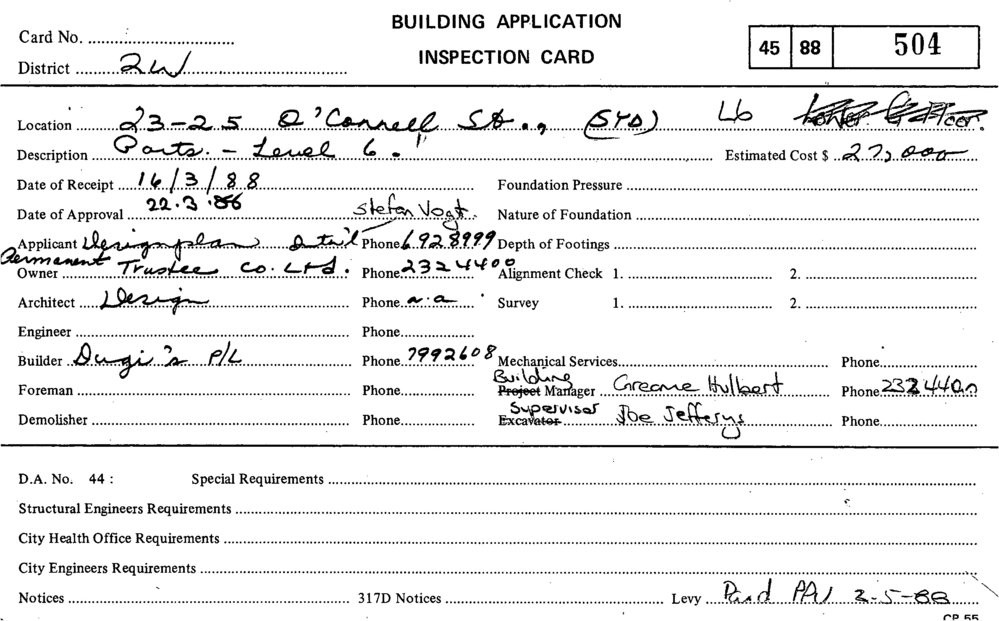 BUILDING APPLICATION
INSPECTION CARD
Card No.
District 2W
45 88 504
Location 23-25 O'Connell St., (SYD) L6 Lower G Floor.
Description Parts. - Level 6." Estimated Cost $ 27,000
Date of Receipt 16/3/88 Foundation Pressure
Date of Approval 22.3. Stefan Vogt. Nature of Foundation
Applicant Designplan Phone 6928999 Depth of Footings
Permanent
Owner Trustee Co. Ltd. Phone 2324400 Alignment Check 1. 2.
Architect Design Phone n.a. Survey 1. 2.
Engineer Phone
Builder Dugi's P/L Phone 7992608 Mechanical Services Phone
Building
Foreman Phone Project Manager Greame Hulbert Phone 2324400
Supervisor
Demolisher Phone Excavator Joe Jefferys Phone
D.A. No. 44 : Special Requirements
Structural Engineers Requirements
City Health Office Requirements
City Engineers Requirements
Notices 317D Notices Levy Paid 2-5-88
CP 55